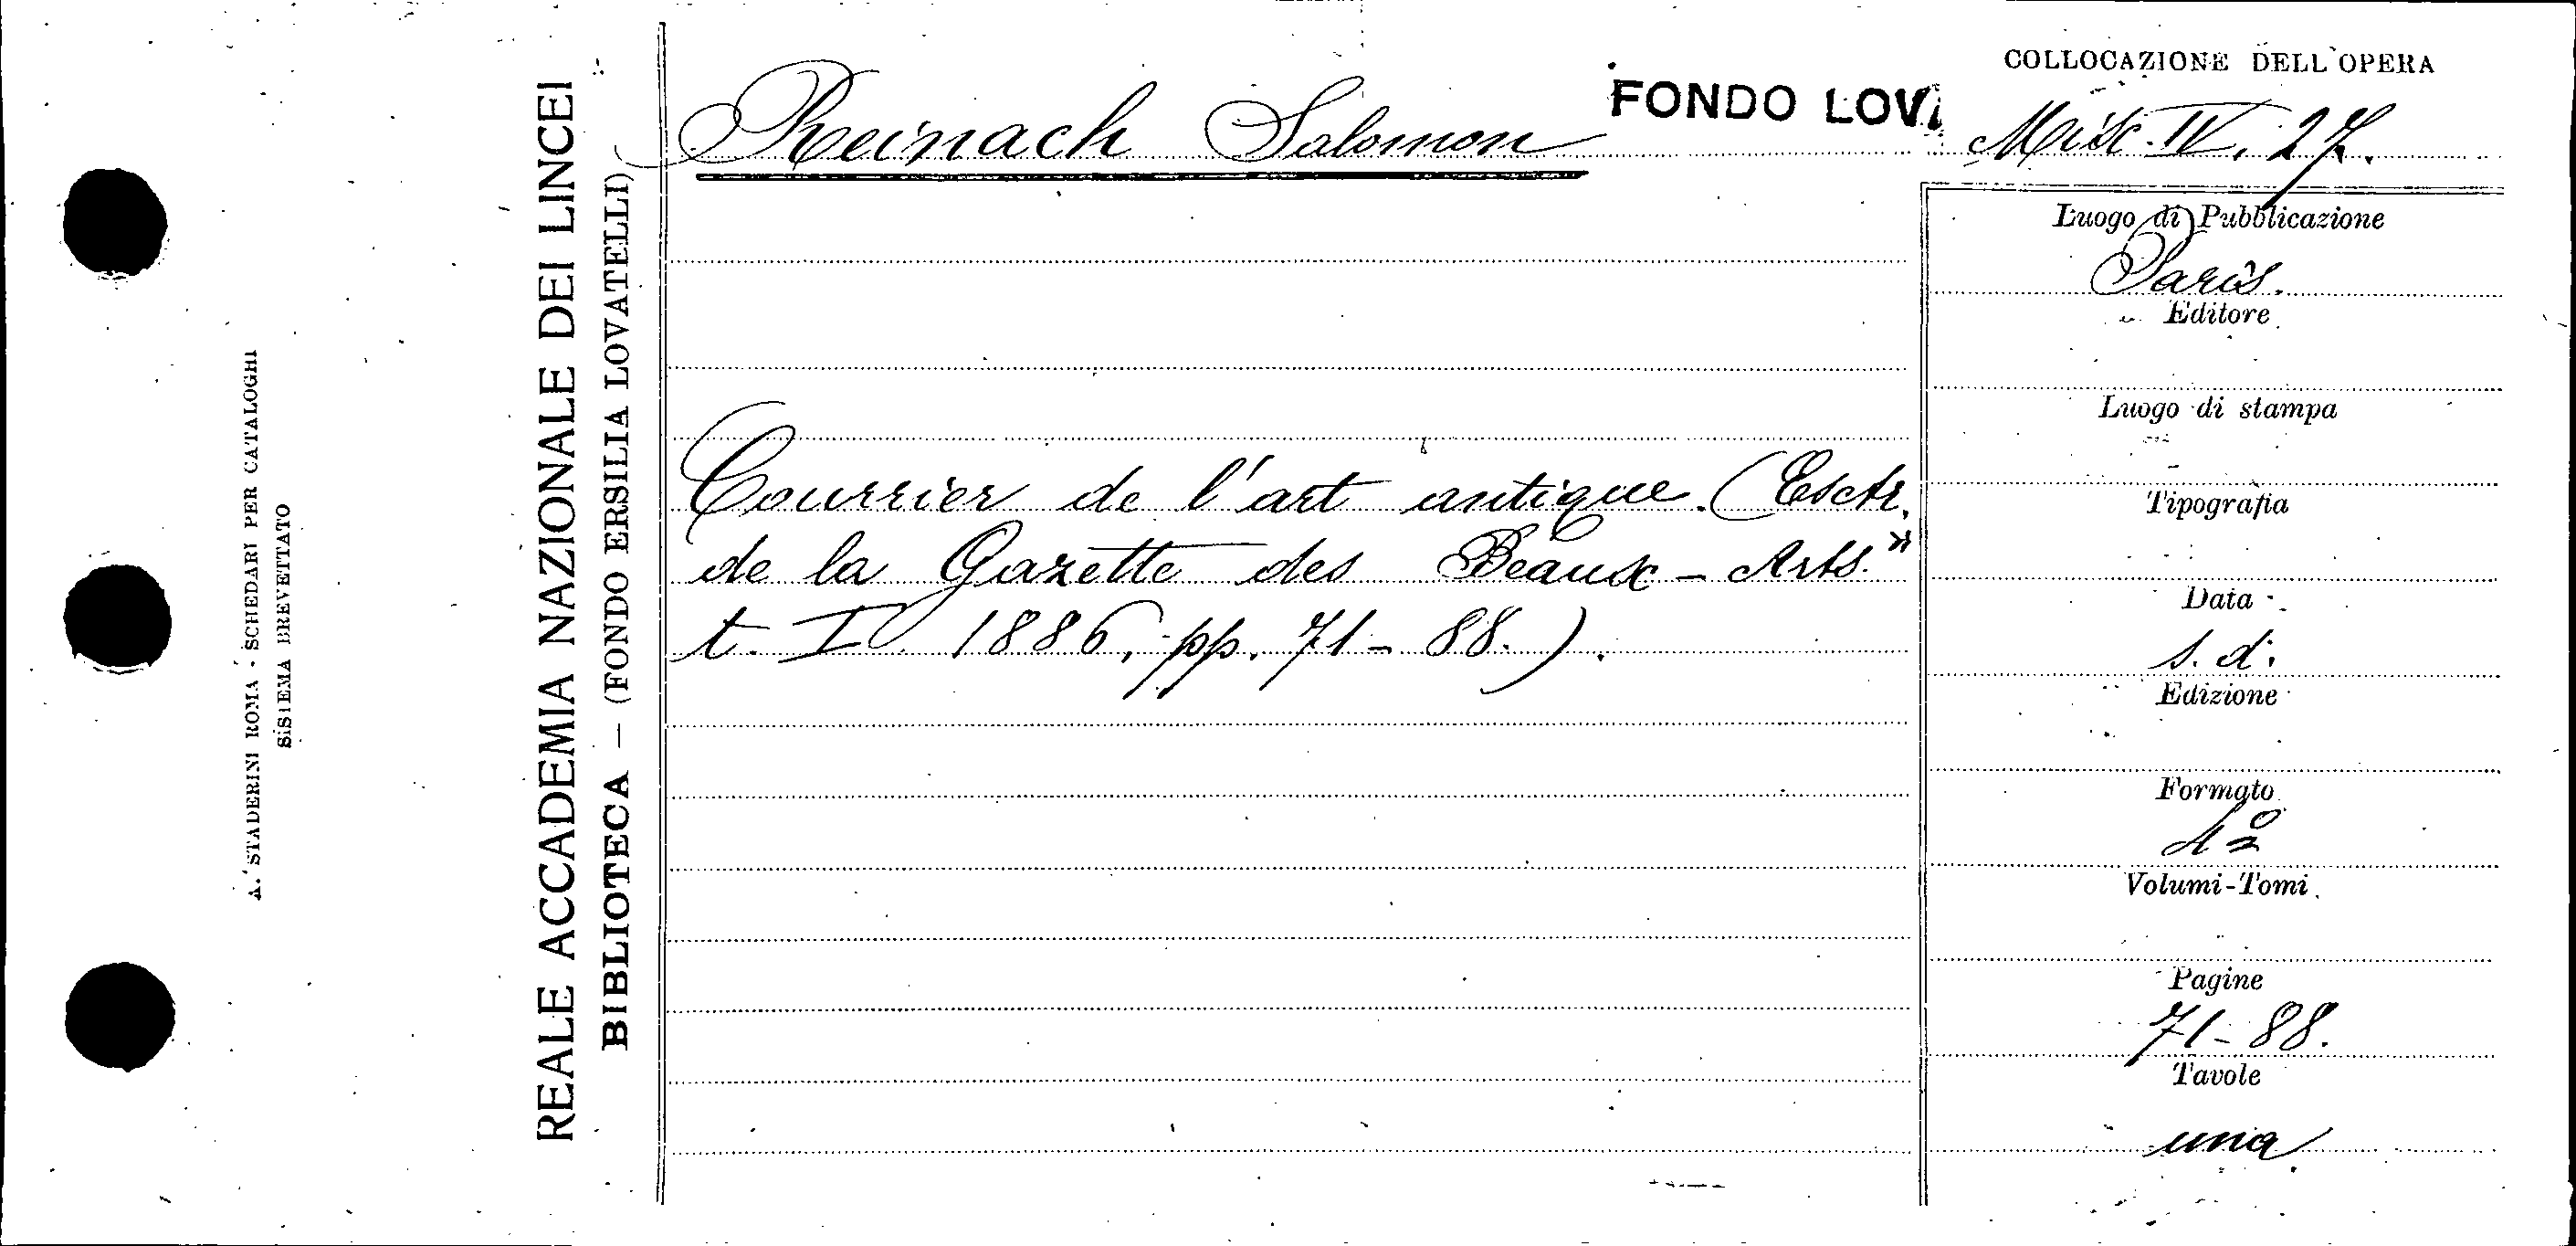 A. STADERINI ROMA - SCHEDARI PER CATALOGHI
SISTEMA BREVETTATO
REALE ACCADEMIA NAZIONALE DEI LINCEI
BIBLIOTECA — (FONDO ERSILIA LOVATELLI)
Reinach Salomon
FONDO LOV
Courrier de l'art antique. (Estr.
de la Gazette des Beaux-Arts."
t. I 1886, pp. 71-88.).
COLLOCAZIONE DELL'OPERA
Misc. IV. 27.
Luogo di Pubblicazione
Paris.
Editore
Luogo di stampa
Tipografia
Data
s. d.
Edizione
Formato
4º
Volumi-Tomi
Pagine
71-88.
Tavole
una